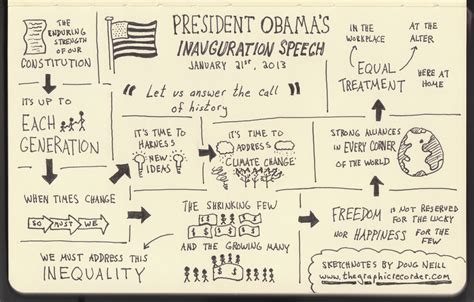 PRESIDENT OBAMA'S
INAUGURATION SPEECH
JANUARY 21ST, 2013
THE
ENDURING
STRENGTH
OF OUR
CONSTITUTION
IT'S UP TO
EACH
GENERATION
WHEN TIMES CHANGE
SO MUST WE
WE MUST ADDRESS THIS
INEQUALITY
"Let us answer the call
of history"
IT'S TIME TO
HARNESS
NEW
IDEAS
IT'S TIME TO
ADDRESS
CLIMATE CHANGE
THE SHRINKING FEW
AND THE GROWING MANY
FREEDOM IS NOT RESERVED
FOR THE LUCKY
NOR HAPPINESS FOR THE
FEW
STRONG ALLIANCES
IN EVERY CORNER
OF THE WORLD
EQUAL
TREATMENT
IN THE
WORKPLACE
AT THE
ALTER
HERE AT
HOME
SKETCHNOTES BY DOUG NEILL
www.thegraphicrecorder.com